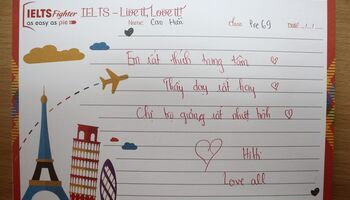 IELTS Fighter
as easy as pie
IELTS - Live it, Love it!
Name: Cao Hiền Class: Pre 69 Date: / /
Em rất thích trung tâm
Thầy dạy rất hay
Chị trợ giảng rất nhiệt tình
Hihi
Love all